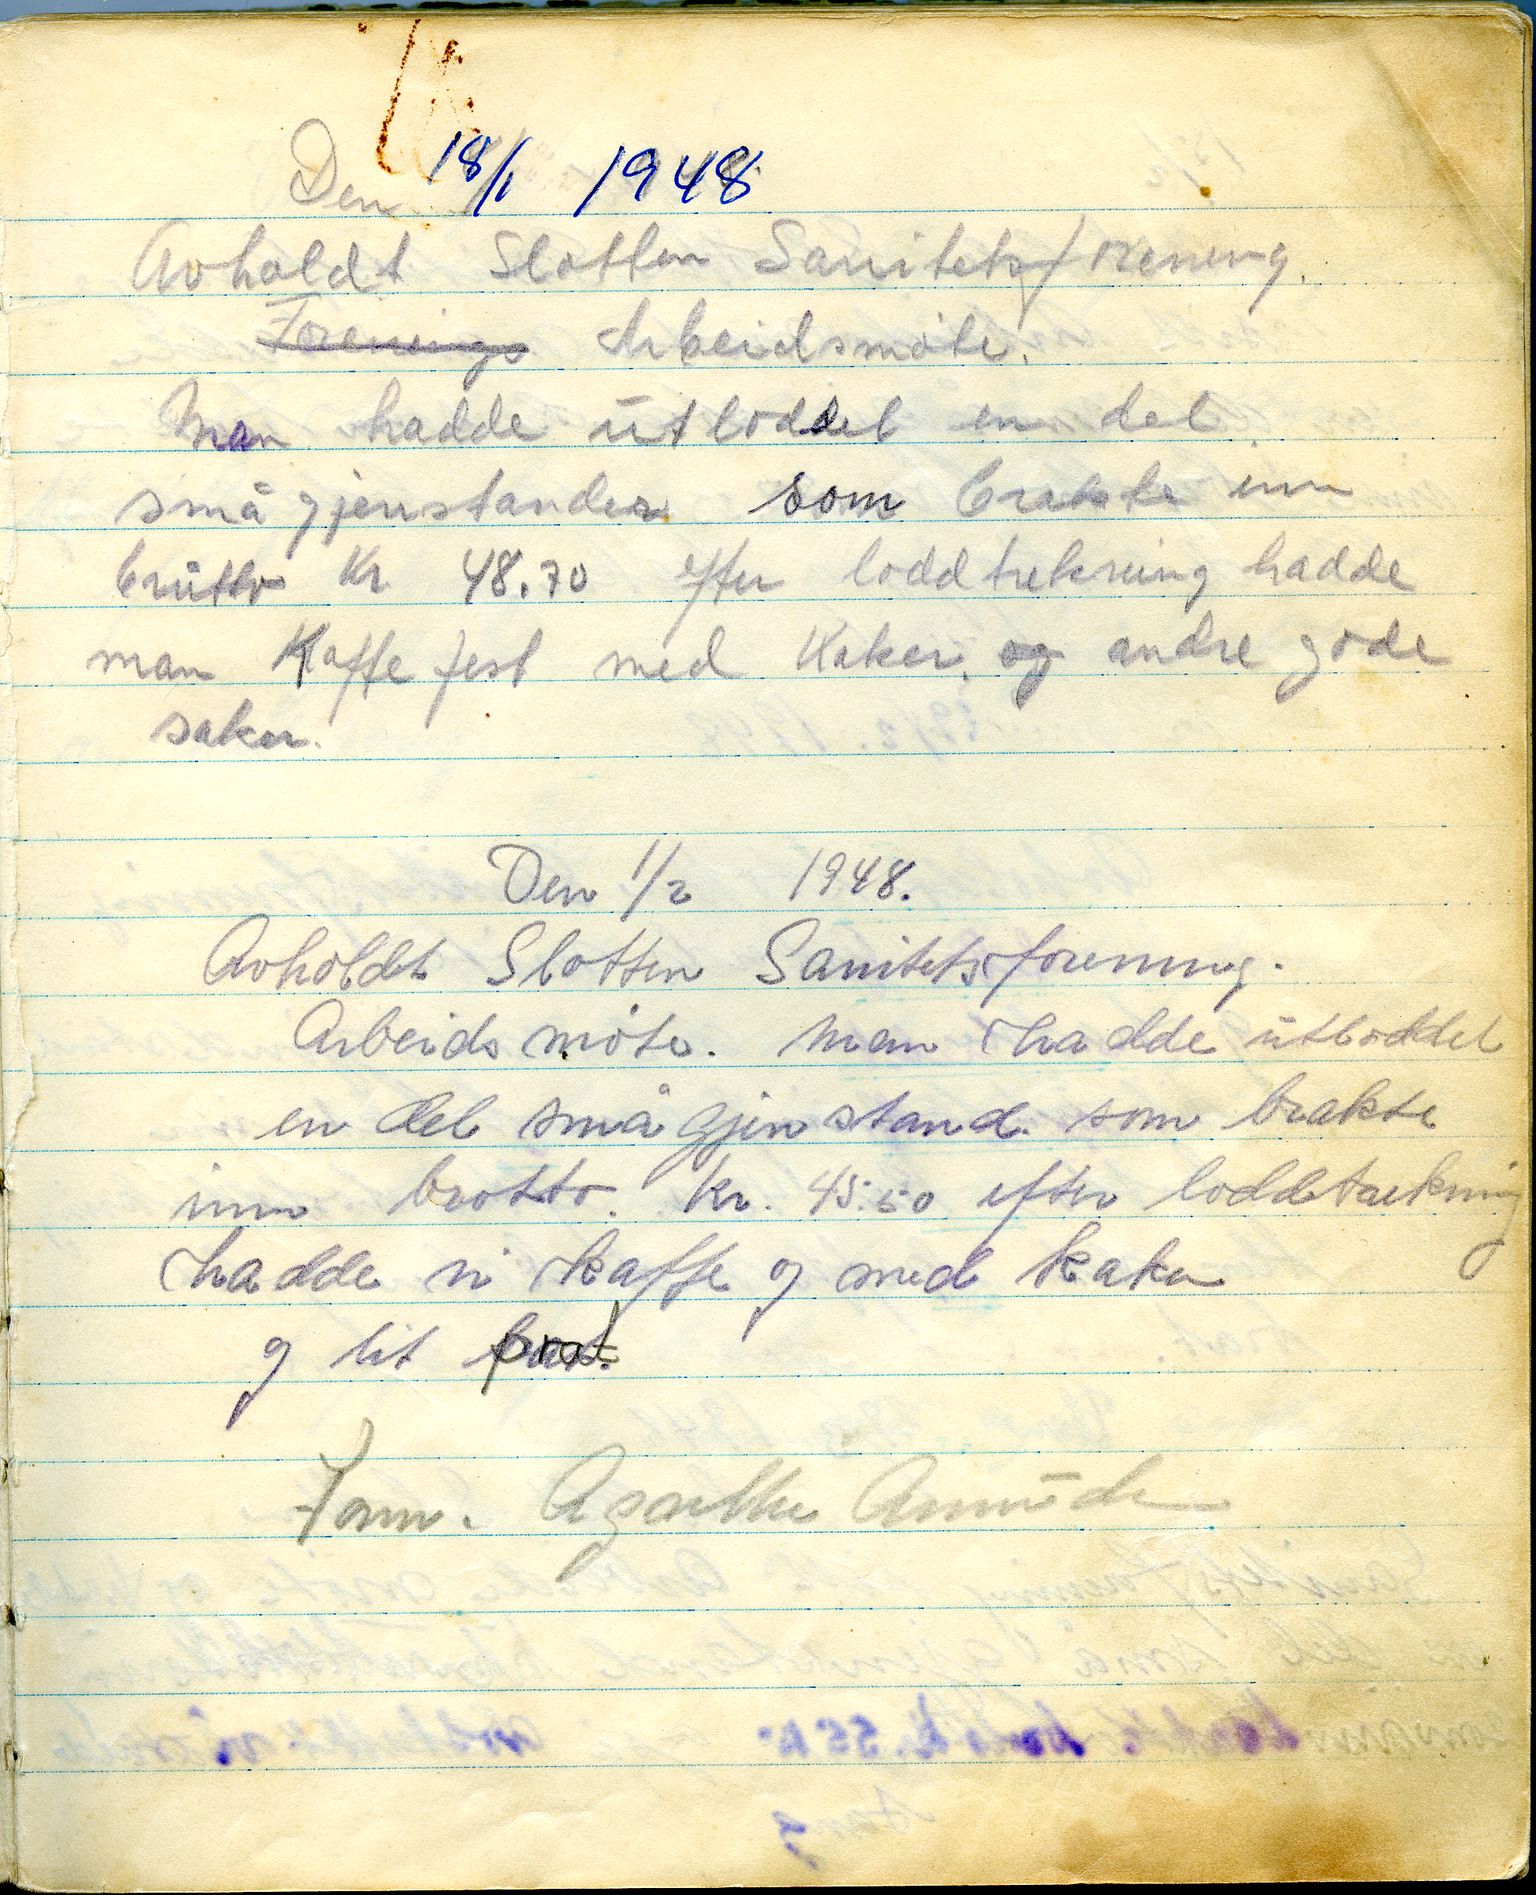 Den 18/1 1948
Avholdt Slotten Sanitetsforening.
Forenings Arbeidsmöte.
Man hadde utloddet en del
små gjenstander som brakte inn
brutto Kr 48.70 efter loddtrekning hadde
man Kaffe fest med Kaker. og andre gode
saker.
Den 1/2 1948.
Avholdt Slotten Sanitetsforening.
Arbeids möte. Man hadde utloddet
en del små gjenstand. som brakte
inn brotto. Kr. 45.50 efter loddtrekning
hadde vi kaffe og med kaker
og lit prat.
Form. Agathe Amunde